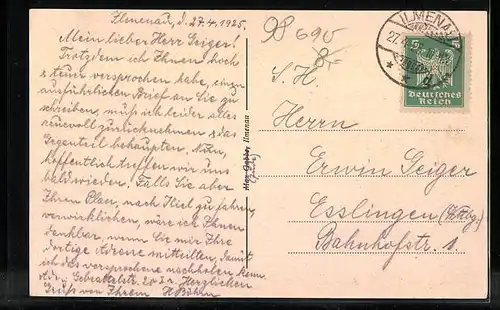 Ilmenau, d. 27.4.1925.
Mein lieber Herr Geiger!
Trotzdem ich Ihnen hoch
u. teuer versprochen habe, einen
ausführlichen Brief an Sie zu
schreiben, muß ich leider alles
reuevoll zurücknehmen u. das
Gegenteil behaupten. Nun,
hoffentlich treffen wir uns
bald wieder. Falls Sie aber
Ihren Plan, nach Kiel zu fahren,
verwirklichen, wäre ich Ihnen
dankbar, wenn Sie mir Ihre
dortige Adresse mitteilten, damit
ich das versprochene nachholen kann
Adr.: 20 I. Herzlichen
Gruß von Ihrem H. Böhm
Ilmenau
98 690
8,-
S. H.
Herrn
Erwin Geiger
Esslingen (Wttbg.)
Bahnhofstr. 1
ILMENAU
27.4.
5
Deutsches
Reich